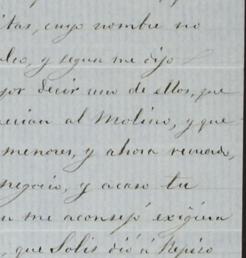 itas, cuyo nombre no
deo, y segun me dijo
por decir uno de ellos, que
necian al Molino, y que
menores, y ahora recuerdo,
negocio, y acaso tu
me aconsejó exigiera
, que Solis dió á Repiso